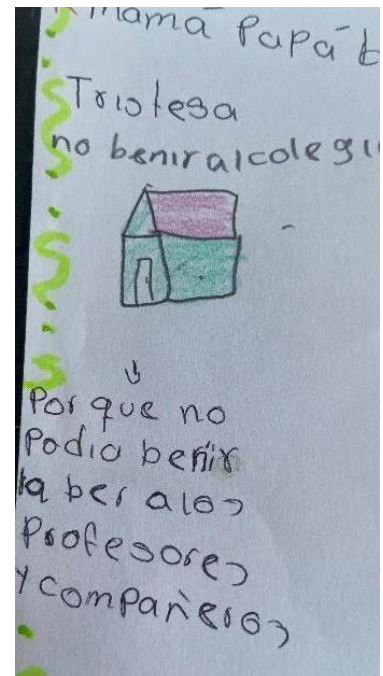 mamá Papá
Tristesa
no benir alcolegi
Por que no
Podia benir
a ber alos
Profesores
y compañeros